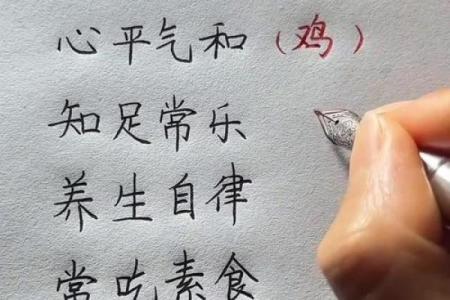 心平气和（鸡）
知足常乐
养生自律
常吃素食